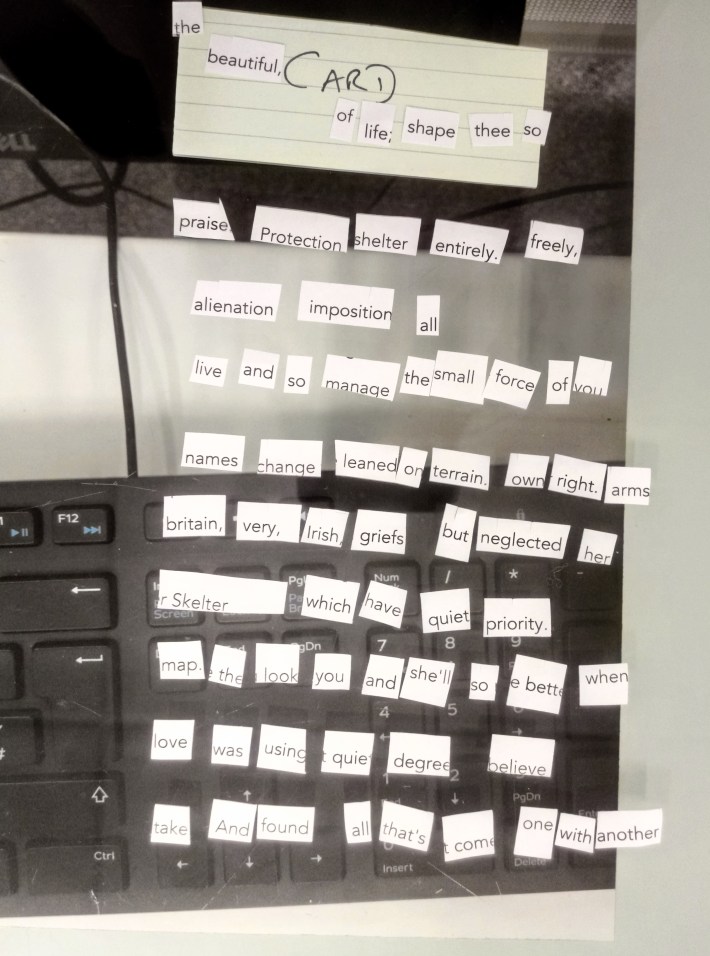 the
beautiful, CARD
of life; shape thee so
praise. Protection shelter entirely. freely,
alienation imposition all
live and so manage the small force of you
names change leaned on terrain. own right. arms
britain, very, Irish, griefs but neglected her
r Skelter which have quiet priority.
map. the look you and she'll so e bette when
love was using t quie degree believe
take And found all that's t come one with another
F12
Num
/
*
-
7
8
9
4
5
2
PgDn
Ctrl
Insert
Delete